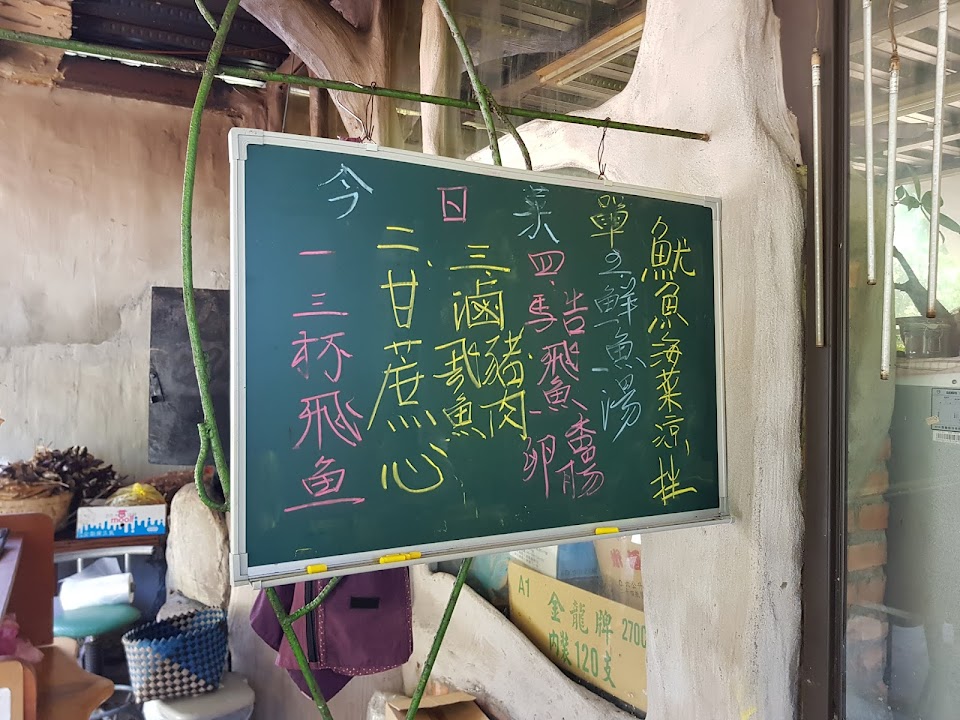 今日菜單
一三杯飛魚
二、甘蔗心
三、滷豬肉
飛魚
四、馬告飛魚卵
香腸
5.鮮魚湯
魷魚海菜涼拌
A1 金龍牌 2700
內裝120支